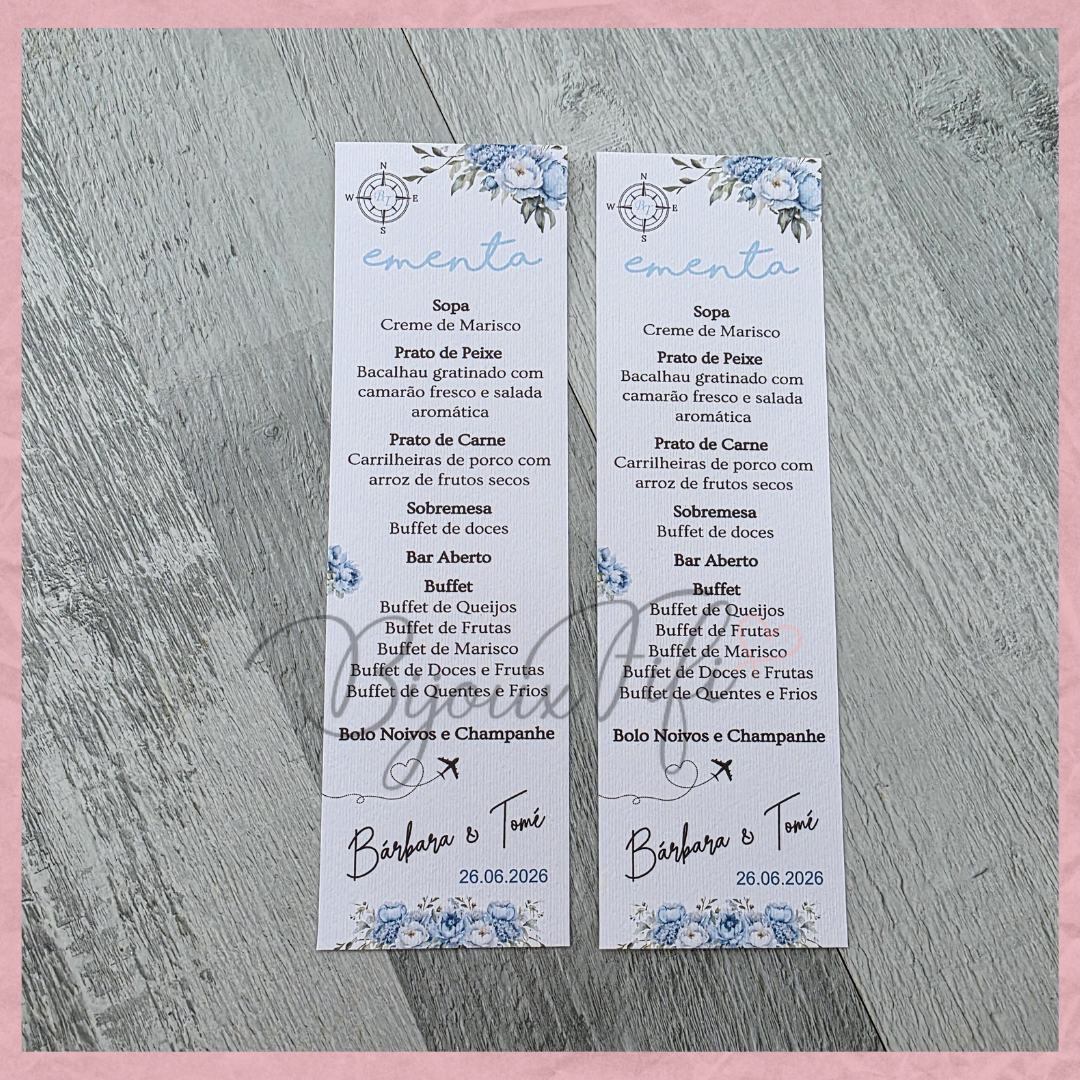 N
W E
S
BT
ementa
Sopa
Creme de Marisco
Prato de Peixe
Bacalhau gratinado com
camarão fresco e salada
aromática
Prato de Carne
Carrilheiras de porco com
arroz de frutos secos
Sobremesa
Buffet de doces
Bar Aberto
Buffet
Buffet de Queijos
Buffet de Frutas
Buffet de Marisco
Buffet de Doces e Frutas
Buffet de Quentes e Frios
Bolo Noivos e Champanhe
Bárbara & Tomé
26.06.2026
N
W E
S
BT
ementa
Sopa
Creme de Marisco
Prato de Peixe
Bacalhau gratinado com
camarão fresco e salada
aromática
Prato de Carne
Carrilheiras de porco com
arroz de frutos secos
Sobremesa
Buffet de doces
Bar Aberto
Buffet
Buffet de Queijos
Buffet de Frutas
Buffet de Marisco
Buffet de Doces e Frutas
Buffet de Quentes e Frios
Bolo Noivos e Champanhe
Bárbara & Tomé
26.06.2026
Bijoux Fifi